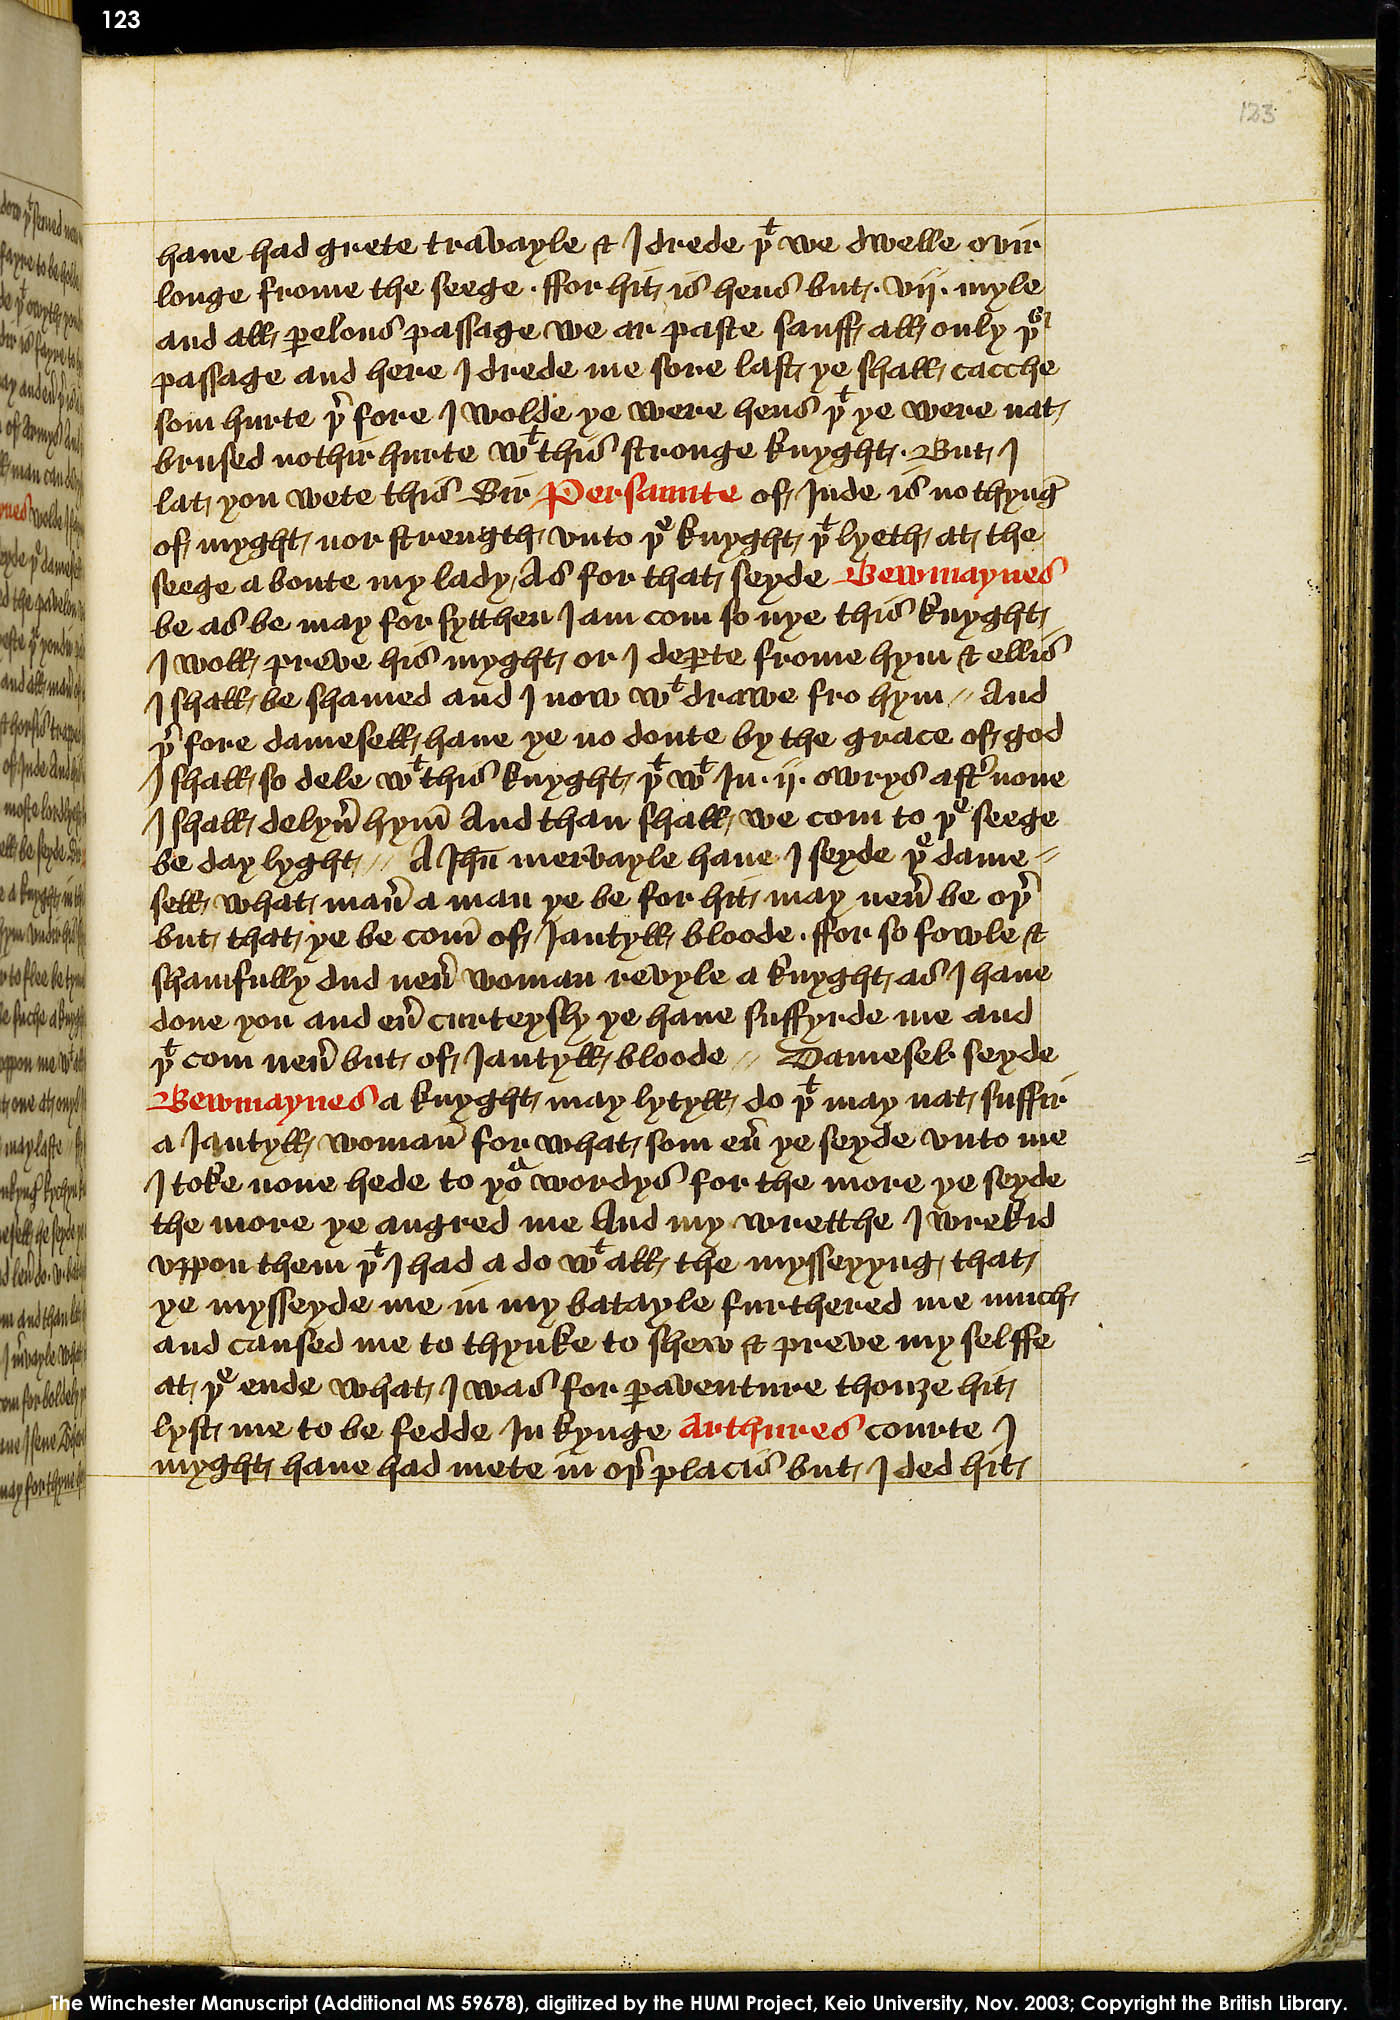 123
123
haue had grete travayle & I drede þᵗ we dwelle ovir
longe frome the seege · ffor hit is hens but · vij · myle
and all ꝑelous passage we ar paste sauff all only þᵉʳ
passage and here I drede me sore last ye shall cacche
som hurte þ̉ fore I wolde ye were hens þᵗ ye were nat
brused nothir hurte wᵗ this stronge knyght · But I
lat you wete this Sir Persaunte of Inde is no thyng̉
of myght nor strength vnto þᵉ knyght þᵗ lyeth at the
seege a boute my lady / As for that seyde Bewmaynes
be as be may for sytthen I am com so nye this knyght
I woll preve his myght or I deꝑte frome hym & ellis
I shall be shamed and I now wᵗ drawe fro hym // And
þ̉ fore damesell haue ye no doute by the grace of god
I shall so dele wᵗ this knyght þᵗ wᵗ In · ij · owrys aft̉ none
I shall delyủ hym̄ And than shall we com to þᵉ seege
be day lyght // A Ihū mervayle haue I seyde þᵉ dame //
sell what man̉ a man ye be for hit may neủ be oþ̉
but that ye be com̄ of Iantyll bloode · ffor so fowle &
shamfully dud neủ woman revyle a knyght as I haue
done you and eủ curteysly ye haue suffyrde me and
þᵗ com neủ but of Iantyll bloode // Damesel seyde
Bewmaynes a knyght may lytyll do þᵗ may nat suffir
a Iantyll woman̄ for what som eủ ye seyde vnto me
I toke none hede to yoᵃ wordys for the more ye seyde
the more ye angred me And my wretthe I wrekid
vppon them þᵗ I had a do wᵗ all the mysseyyng that
ye mysseyde me in my batayle furthered me much
and caused me to thynke to shew & preve my selffe
at þᵉ ende what I was for ꝑaventure thouȝe hit
lyst me to be fedde In kynge Arthures courte I
myght haue had mete in oþ̉ placis but I ded hit
The Winchester Manuscript (Additional MS 59678), digitized by the HUMI Project, Keio University, Nov. 2003; Copyright the British Library.